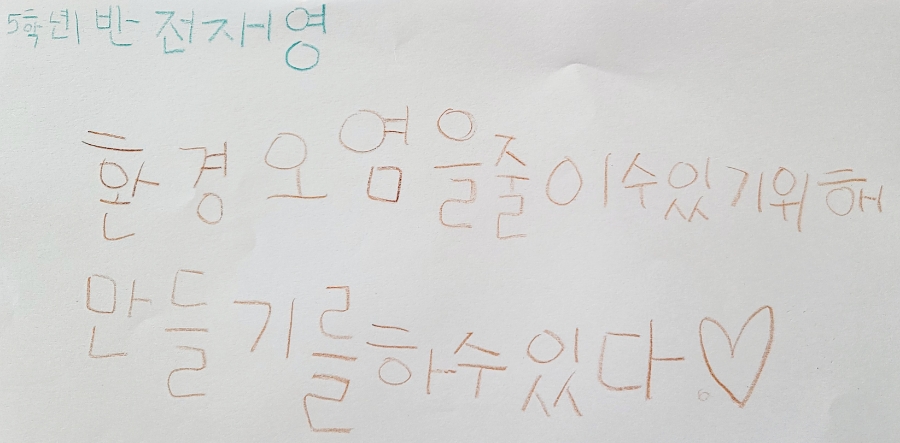 5학년 1반 전재영
환경오염을줄이수있기위해
만들기를하수있다.♡